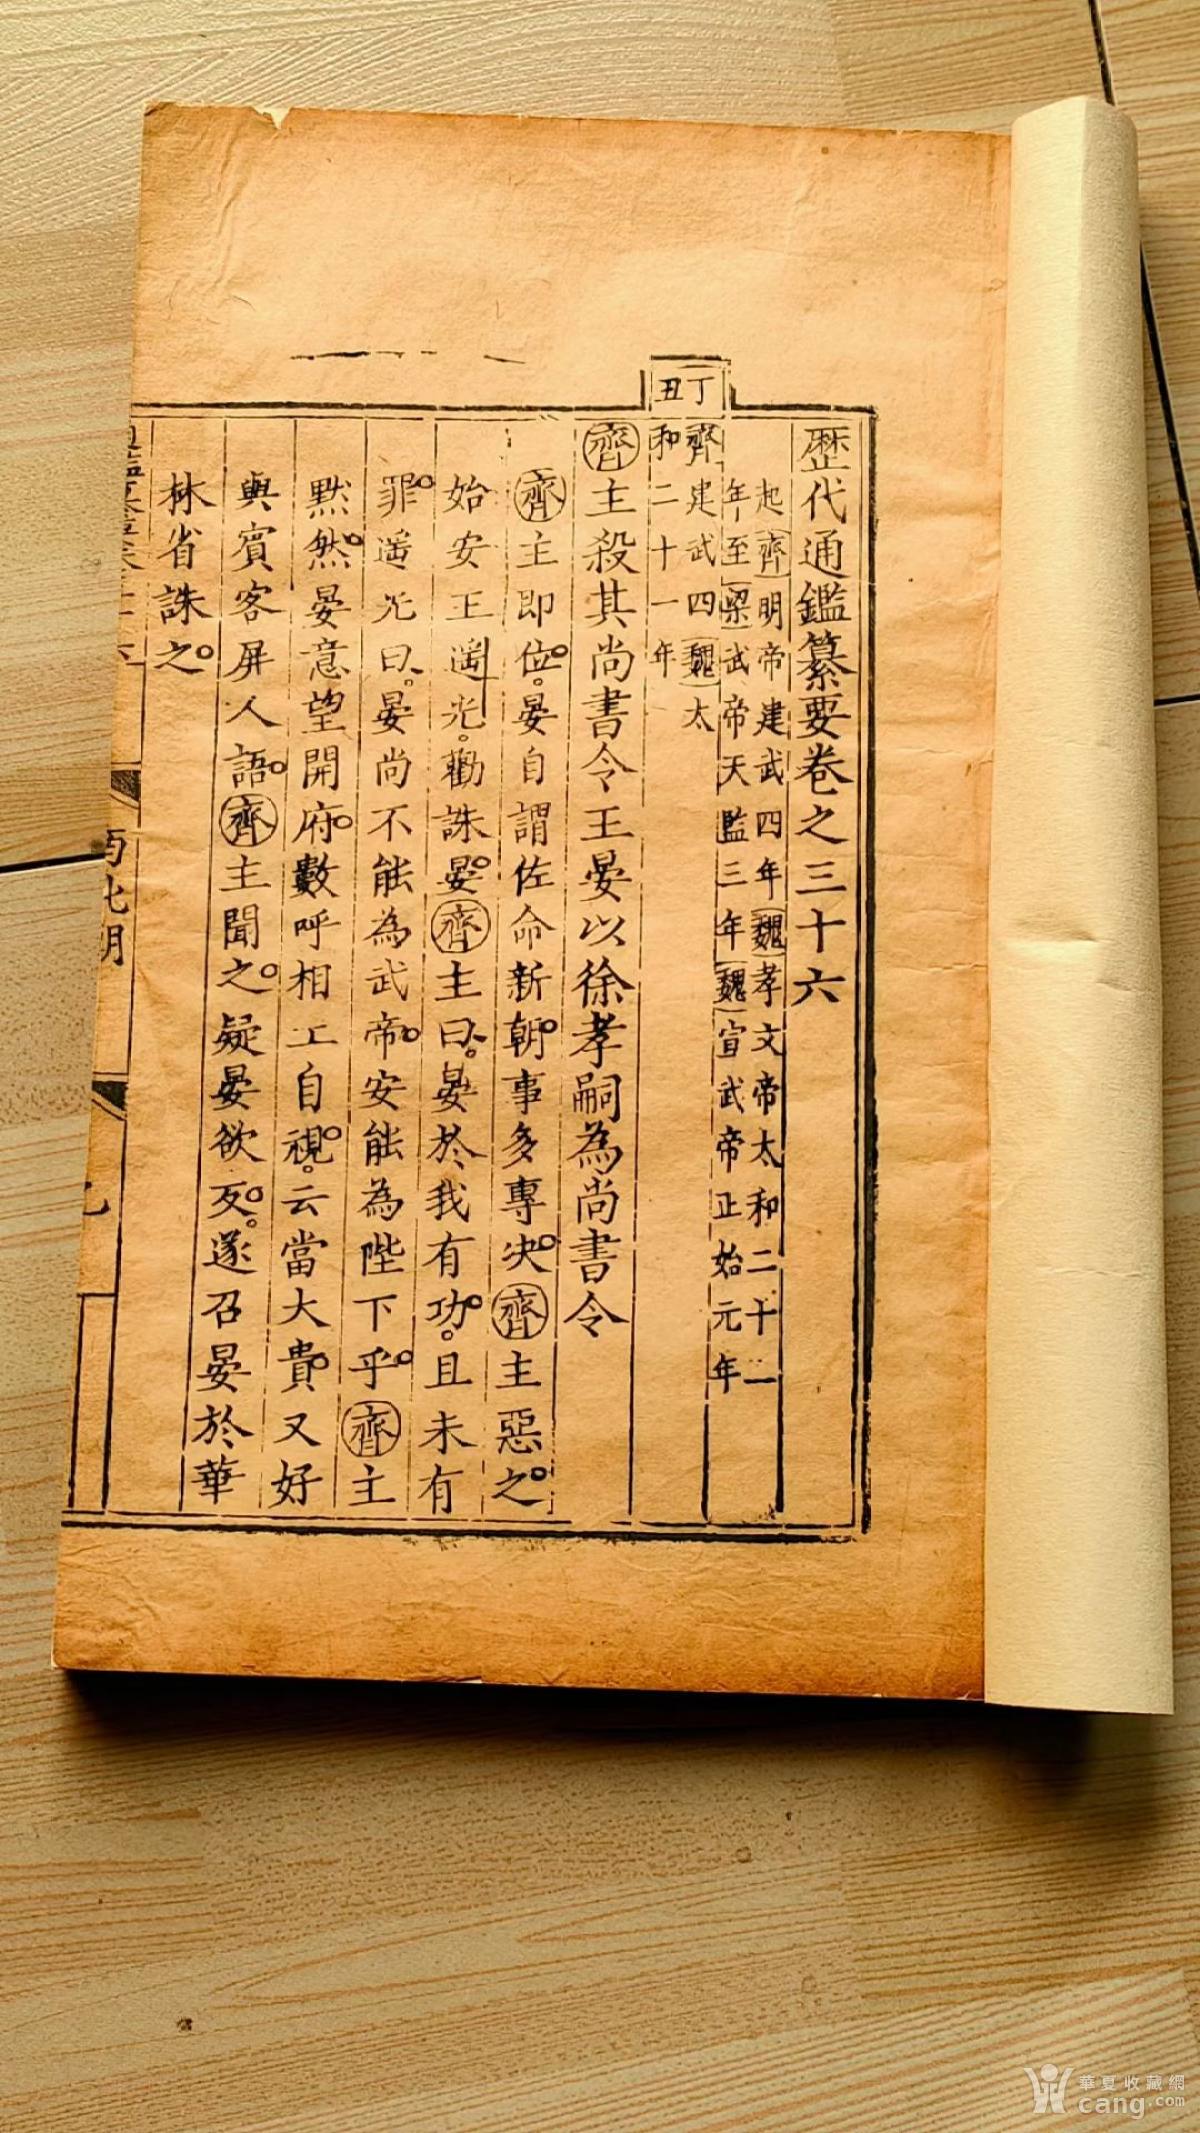 歷代通鑑纂要卷之三十六
起齊明帝建武四年魏孝文帝太和二十一
年至梁武帝天監三年魏宣武帝正始元年
丁丑
齊建武四魏太
和二十一年
齊主殺其尚書令王晏以徐孝嗣為尚書令
齊主即位。晏自謂佐命新朝。事多專決。齊主惡之。
始安王遥光。勸誅晏。齊主曰。晏於我有功。且未有
罪。遥光曰。晏尚不能為武帝。安能為陛下乎。齊主
默然。晏意望開府。數呼相工自視。云當大貴。又好
與賓客屏人語。齊主聞之。疑晏欲反。遂召晏於華
林省誅之。
北朝
華夏收藏網
cang.com